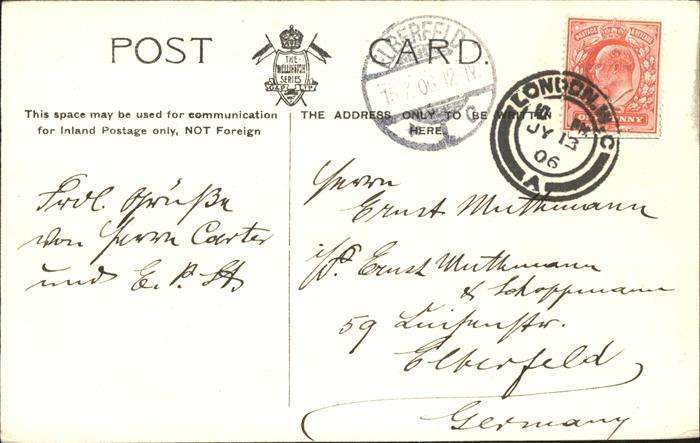 POST CARD.
THE
WELLINGTON
SERIES
This space may be used for communication
for Inland Postage only, NOT Foreign
THE ADDRESS ONLY TO BE WRITTEN
HERE.
ELBERFELD
LONDON. W.C
JY 13
06
A
ONE PENNY
Frdl. Grüße
von Herrn Carter
und E. P.
Herrn
Ernst Muthmann
i/F. Ernst Muthmann
& Schoppmann
59 Luisenstr.
Elberfeld
Germany